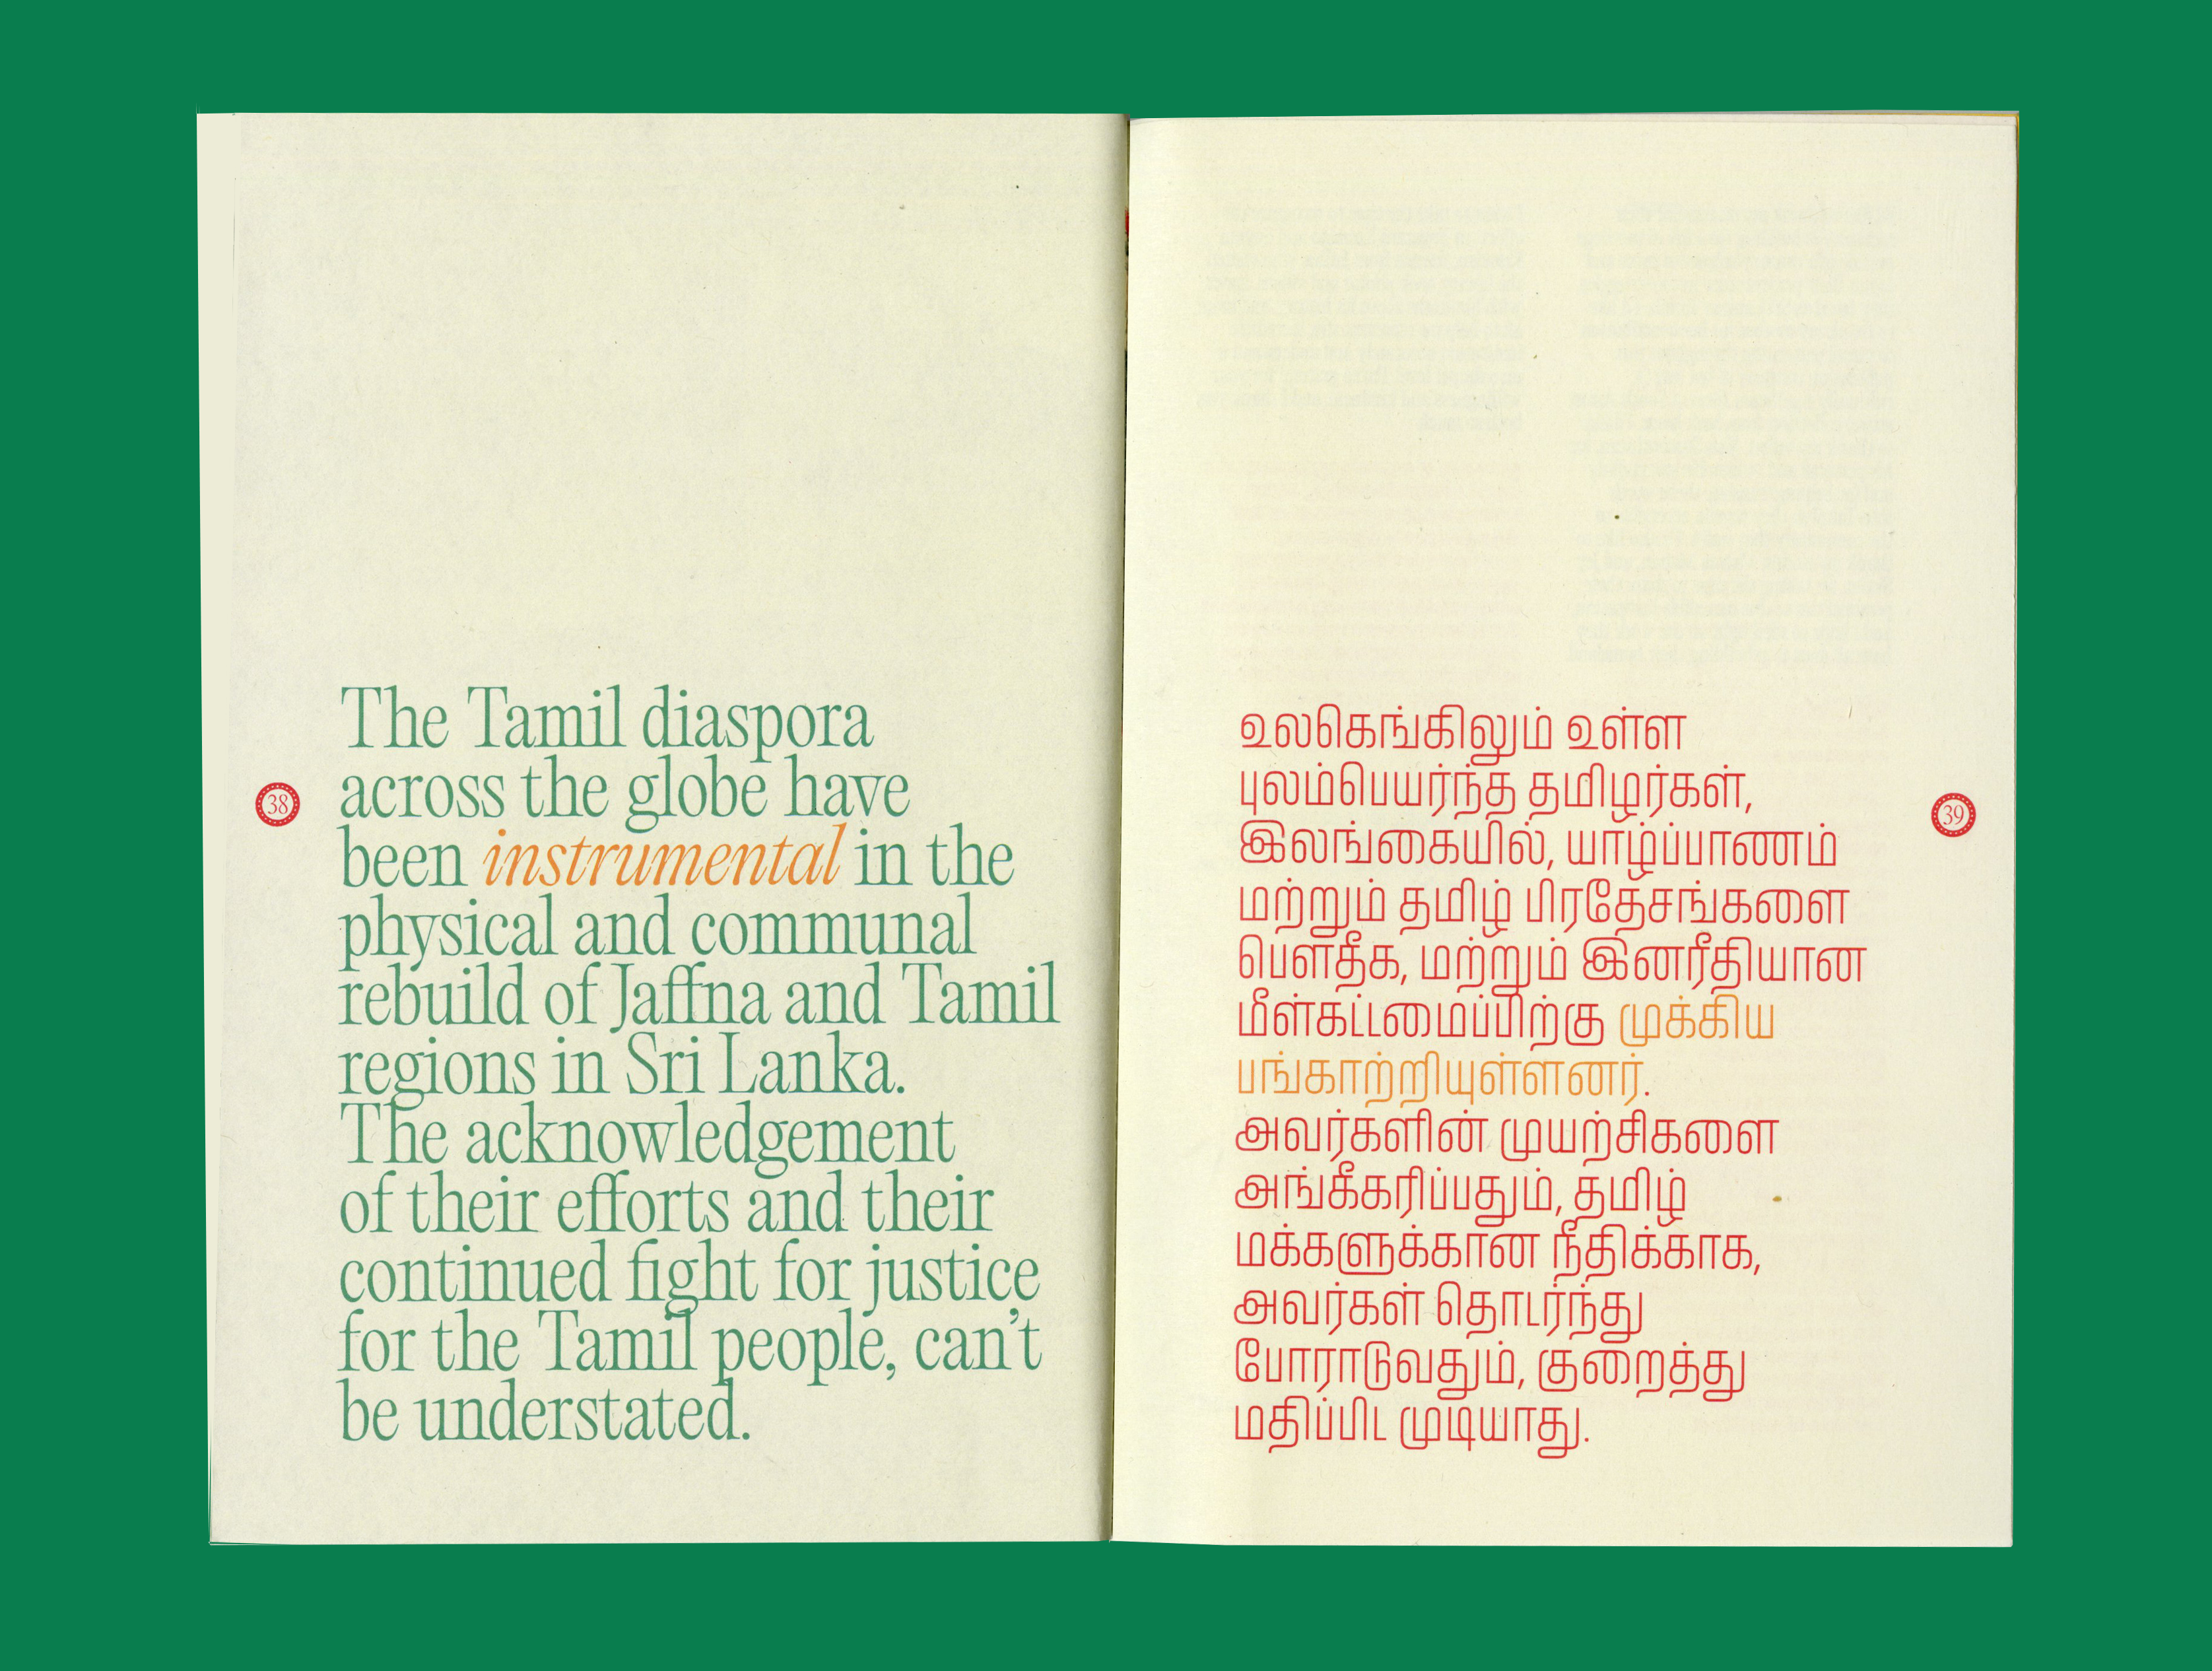 The Tamil diaspora
across the globe have
been instrumental in the
physical and communal
rebuild of Jaffna and Tamil
regions in Sri Lanka.
The acknowledgement
of their efforts and their
continued fight for justice
for the Tamil people, can’t
be understated.
38
உலகெங்கிலும் உள்ள
புலம்பெயர்ந்த தமிழர்கள்,
இலங்கையில், யாழ்ப்பாணம்
மற்றும் தமிழ் பிரதேசங்களை
பௌதீக, மற்றும் இனரீதியான
மீள்கட்டமைப்பிற்கு முக்கிய
பங்காற்றியுள்ளனர்.
அவர்களின் முயற்சிகளை
அங்கீகரிப்பதும், தமிழ்
மக்களுக்கான நீதிக்காக,
அவர்கள் தொடர்ந்து
போராடுவதும், குறைத்து
மதிப்பிட முடியாது.
39